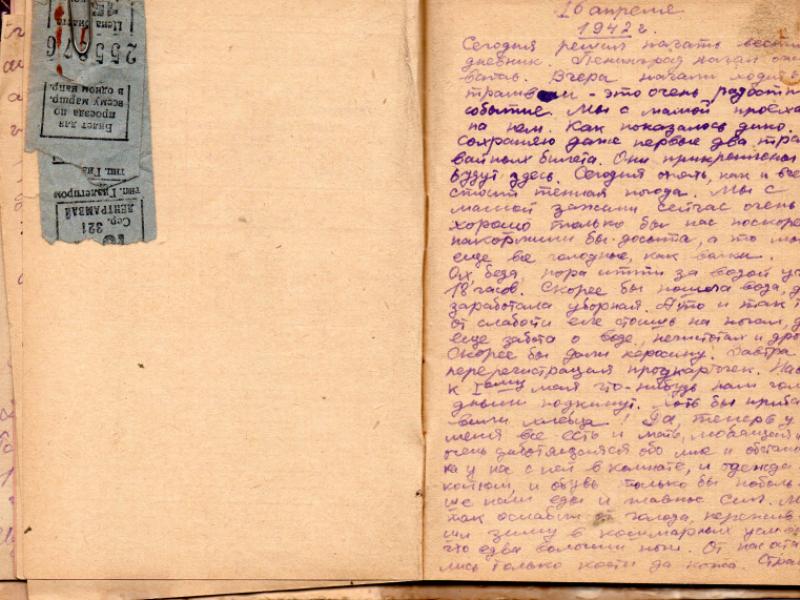 Цена билета
255876
Билет для
проезда по
всему маршр.
в одном напр.
тип. Гиз
тип. Гидлегпром
ЛЕНТРАМВАЙ
Сер. 321
16 апреля
1942 г.
Сегодня решил начать вести
дневник. Ленинград начал ожи
вать. Вчера начали ходить
трамваи - это очень радостн
событие. Мы с мамой проеха
на нем. Как показалось дико.
сохраняю даже первые два тра
вайных билета. Они прикреплены
будут здесь. Сегодня опять, как и вче
стоит теплая погода. Мы с
мамой зажили сейчас очень
хорошо только бы нас поскоре
накормили бы досыта, а то мы
еще все голодные, как волки.
Ох, беда, пора итти за водой уж
18 часов. Скорее бы пошла вода, д
заработала уборная. А то и так
от слабости еле стоишь на ногах, д
еще забота о воде, кипятком и дро
Скорее бы дали керосину. Завтра
перерегистрация продкарточек. На
к 1ому мая что-нибудь нам голо
дным подкинут. Хоть бы приба
вили хлебца! Да, теперь у
меня все есть и мать, любящая и
очень заботящаяся обо мне и обстано
ка у нас с ней в комнате, и одежда
костюм, и обувь только бы поболь
ше нам еды и главное сил. М
так ослабли от голода, пережив
ши зиму в кошмарных услов
что едва волочим ноги. От нас оста
лись только кости да кожа. Стра